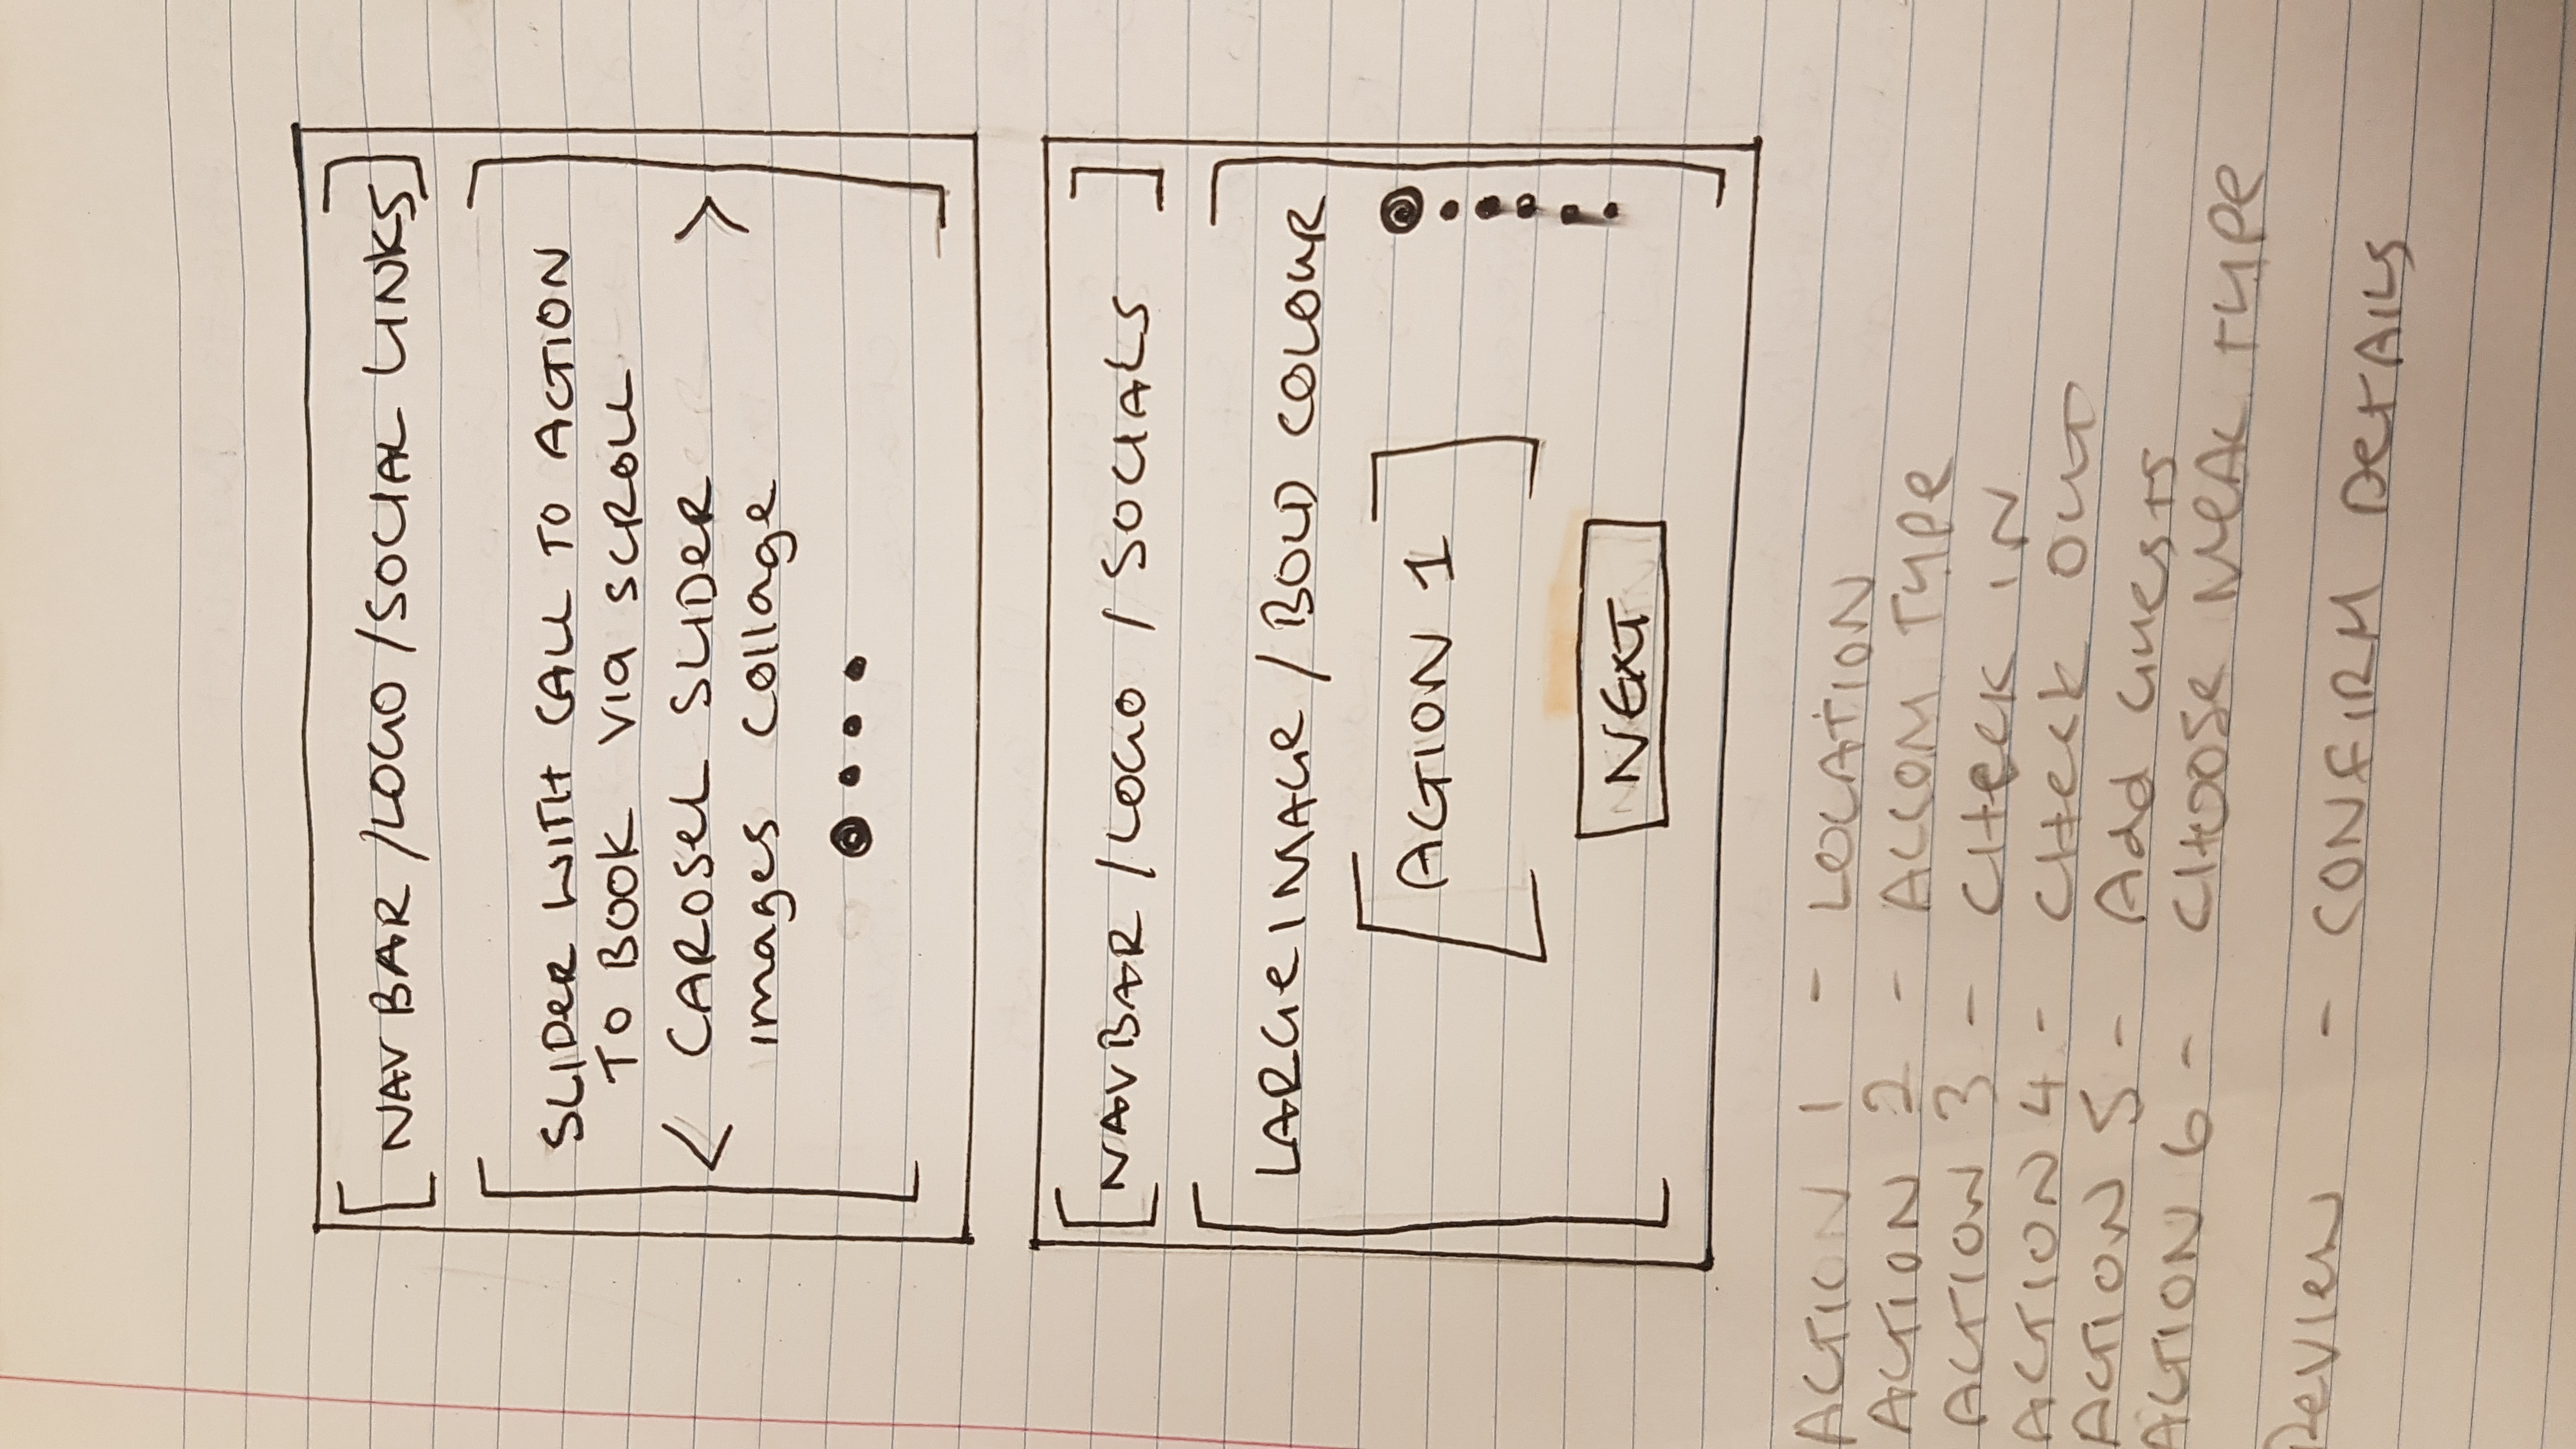 [NAV BAR / LOGO / SOCIAL LINKS]
SLIDER WITH CALL TO ACTION
TO BOOK VIA SCROLL
< CAROSEL SLIDER >
images collage
[NAVBAR / LOGO / SOCIALS]
LARGE IMAGE / BOLD COLOUR
[ACTION 1]
NEXT
ACTION 1 - LOCATION
ACTION 2 - ACCOM TYPE
ACTION 3 - CHECK IN
ACTION 4 - CHECK OUT
ACTION 5 - Add Guests
ACTION 6 - CHOOSE MEAL TYPE
Review - CONFIRM DETAILS